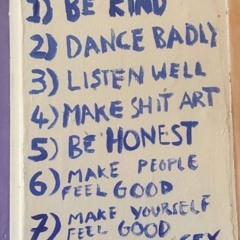 1) BE KIND
2) DANCE BADLY
3) LISTEN WELL
4) MAKE SHIT ART
5) BE HONEST
6) MAKE PEOPLE
FEEL GOOD
7) MAKE YOURSELF
FEEL GOOD